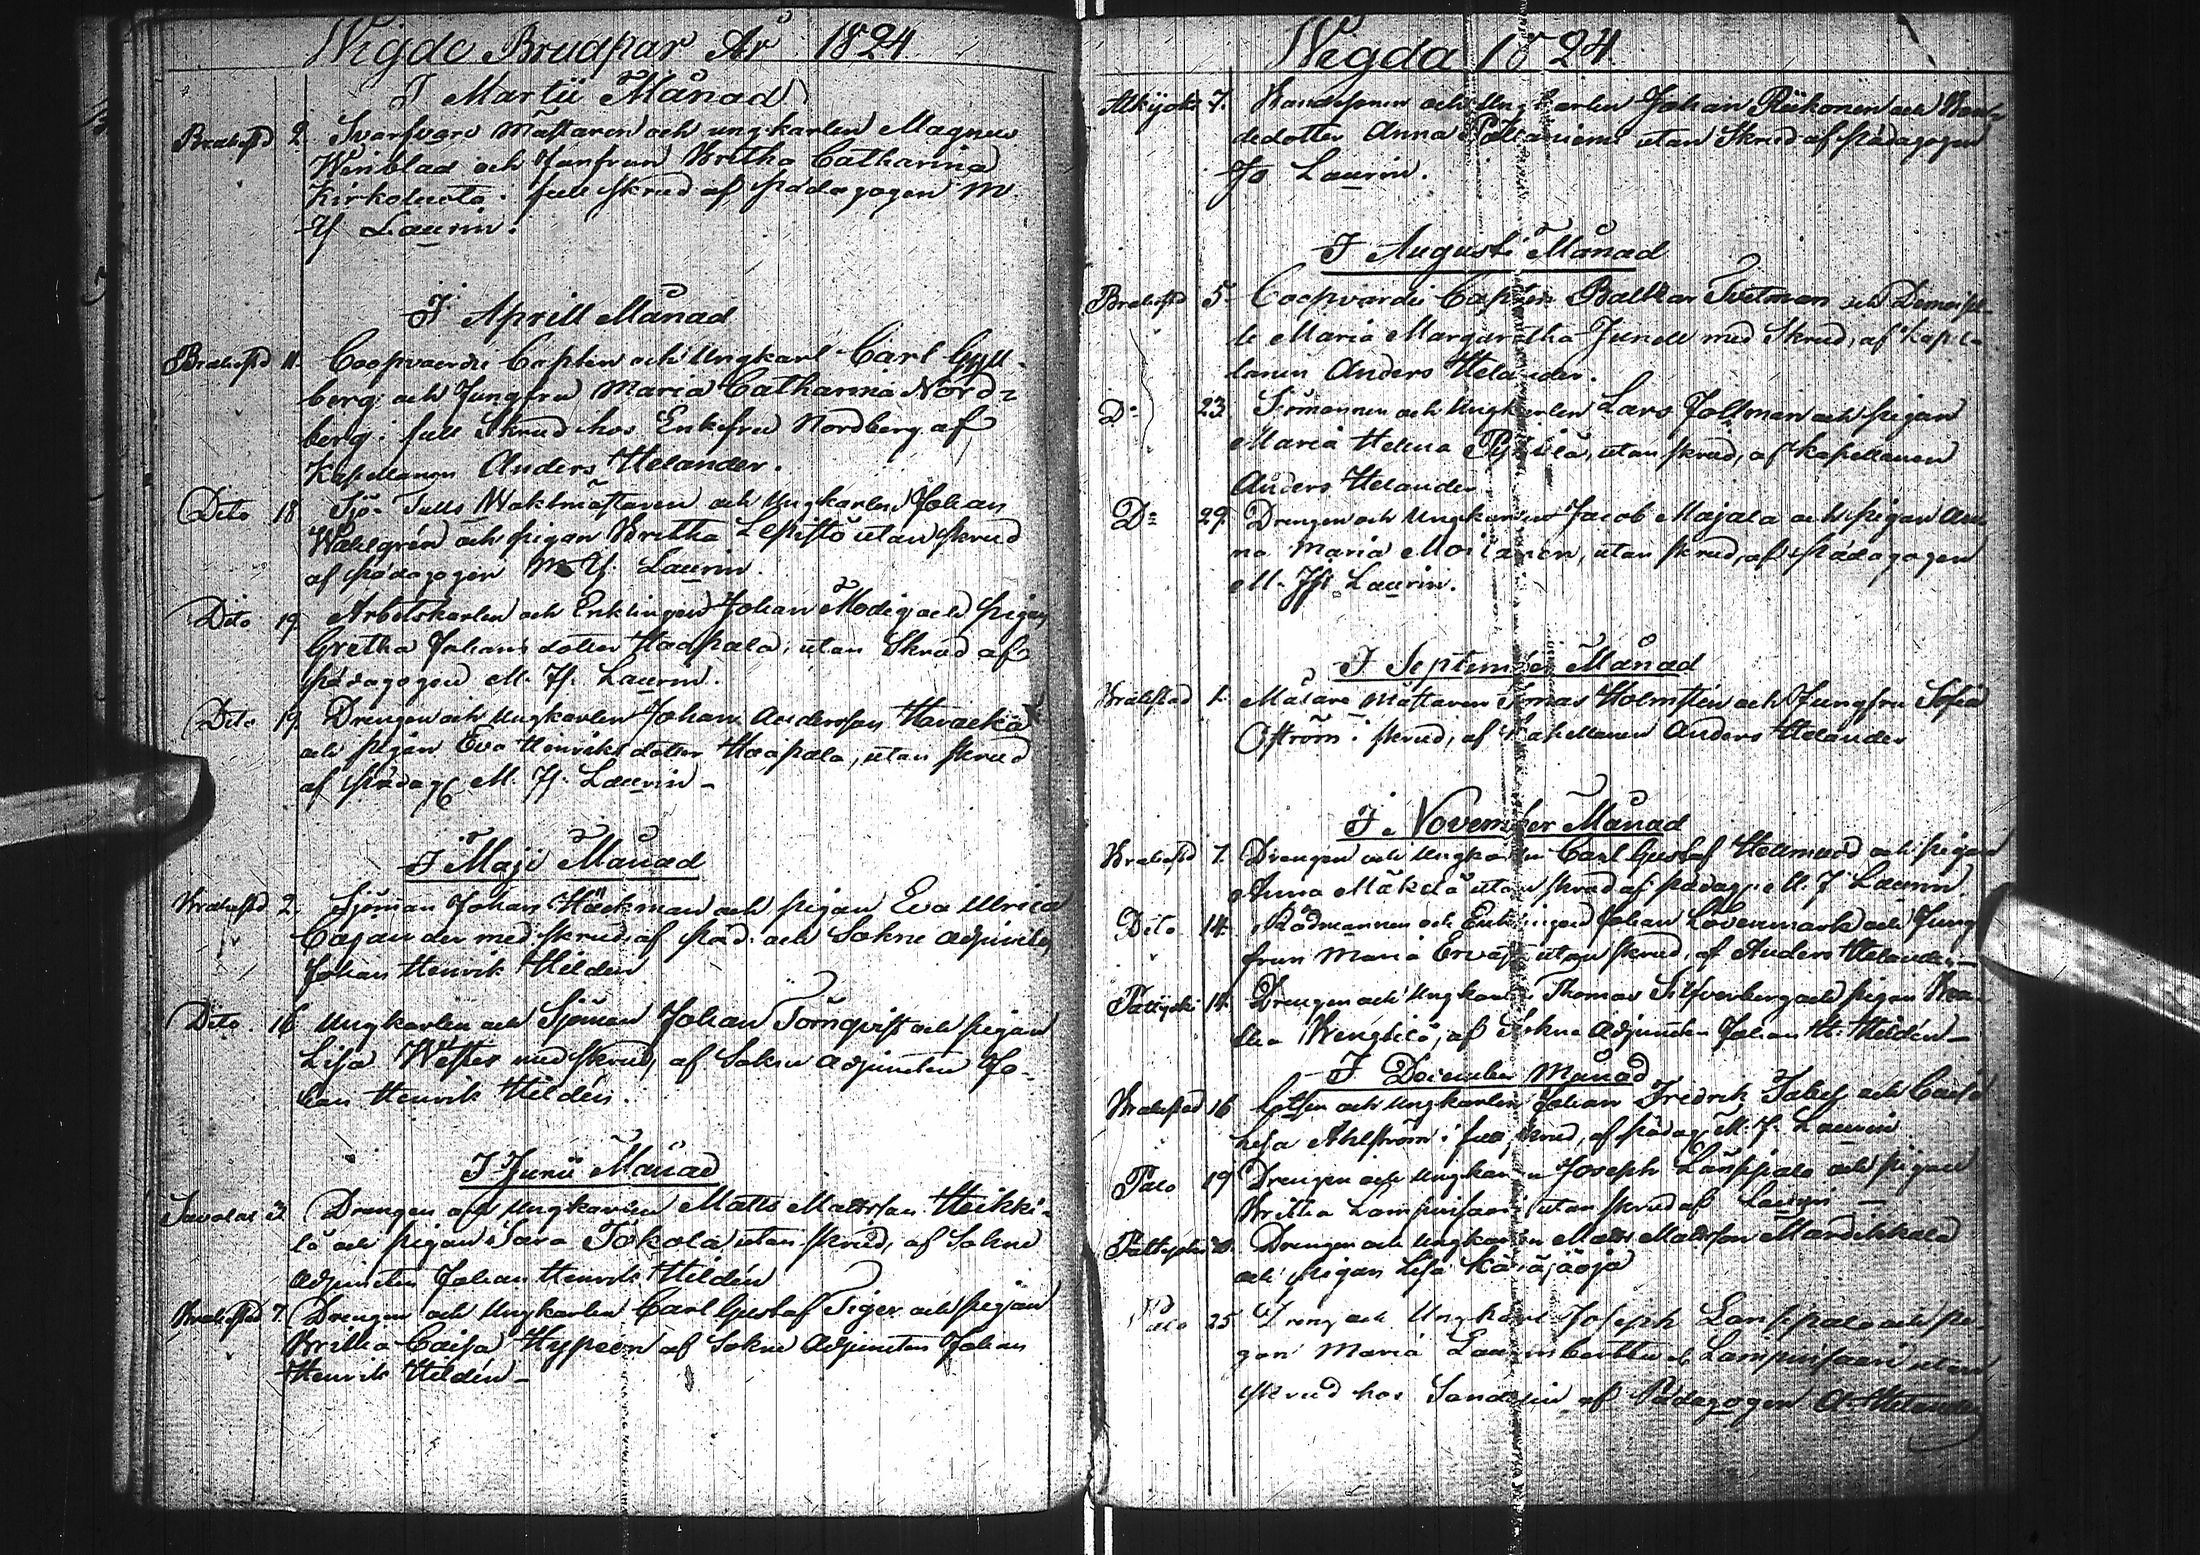 Wigde Brudpar År 1824.
I Martii Månad
Brahestd 2. Svarfvare Mästaren och ungkarlen Magnus
Wenblad och Jungfrun Britha Catharina
Kirkoluoto i full skrud af Pädagogen M
H Laurin.
I Aprill Månad
Brahestd 11. Coopvaerdi Capten och Ungkarl Carl Gyll-
berg och Jungfru Maria Catharina Nord-
berg i full Skrud hos Enkefru Nordberg af
Kapellanen Anders Helander.
Dito 18 Sjö-Tulls Waktmästaren och Ungkarlen Johan
Wahlgrén och pigan Britha Lepistö utan skrud
af pädagogen M H. Laurin.
Dito 19. Arbetskarlen och Enklingen Johan Modig och pigan
Gretha Johans dotter Haapala, utan Skrud af
pädagogen M. H. Laurin.
Dito 19. Drengen och Ungkarlen Johan Andersson
och pigan Eva Henriks dotter Haapala, utan skrud
af Pädag M. H. Laurin -
I Maji Månad
Brahestd 2. Sjöman Johan Häckman och pigan Eva Ulrica
Cajander med skrud, af Päd. och Sokne Adjuncten
Johan Henrik Hildén
Dito. 16 Ungkarlen och Sjöman Johan Törnqvist och pigan
Lisa Wester med skrud, af Sokne Adjuncten Jo-
han Henrik Hildén.
I Junii Månad
Savolax 3. Drengen och Ungkarlen Matts Mattsson Heikki-
lä och pigan Sara Tokola utan skrud, af Sokne
Adjuncten Johan Henrik Hildén
Brahestd 7. Drengen och Ungkarlen Carl Gustaf Tiger och pigan
Britha Caisa Hypeen af Sokne Adjuncten Johan
Henrik Hildén -
Wegda 1824.
7. och Ungkarlen Johan Riikonen och Bon-
dedotter Anna utan Skrud af Pädagogen
Laurin.
I Augusti Månad
Brahestd 5. Coopvardi Capten Baltzar Tvetman och Demoisel-
le Maria Margaretha Junell med Skrud, af Kapel-
lanen Anders Helander.
Do 23 Timmannen och Ungkarlen Lars Jollman och pigan
Maria Helena utan skrud, af Kapellanen
Anders Helander
Do 29. Drengen och Ungkarlen Jacob Majala och pigan An-
na Maria Moilanen, utan skrud, af Pädagogen
M. Laurin.
I September Månad
Brahestad 1. Målare Mästaren Holmstén och Jungfru Sofia
Öström i skrud, af Kapellanen Anders Helander
I November Månad
Brahestd 7. Drengen och Ungkarlen Carl Gustaf och pigan
Anna Mäkelä utan skrud af pädag. M. H Laurin.
Dito 14. Rådmannen och Enklingen Johan Lövenmark och Jung-
frun Maria utan skrud, af Anders Helander -
Pattijoki 14. Drengen och Ungkarlen Thomas Silfverberg och pigan
af Sokne Adjuncten Johan H. Hildén -
I December Månad
Brahestad 16 Lotsen och Ungkarlen Johan Fredrik och Caisa
Lisa Ahlström i full skrud, af Pädag. M. H. Laurin
Palo 19 Drengen och Ungkarlen Joseph och pigan
Britha Lampinsaari utan skrud af Laurin -
Pattijoki Drengen och Ungkarlen Matts Mattsson
och pigan Lisa Käräjäoja
Palo 25 Dreng och Ungkarl Joseph och pi-
gan Maria Lampinsaari utan
skrud hos Sandelin af Pädagogen A. Helander